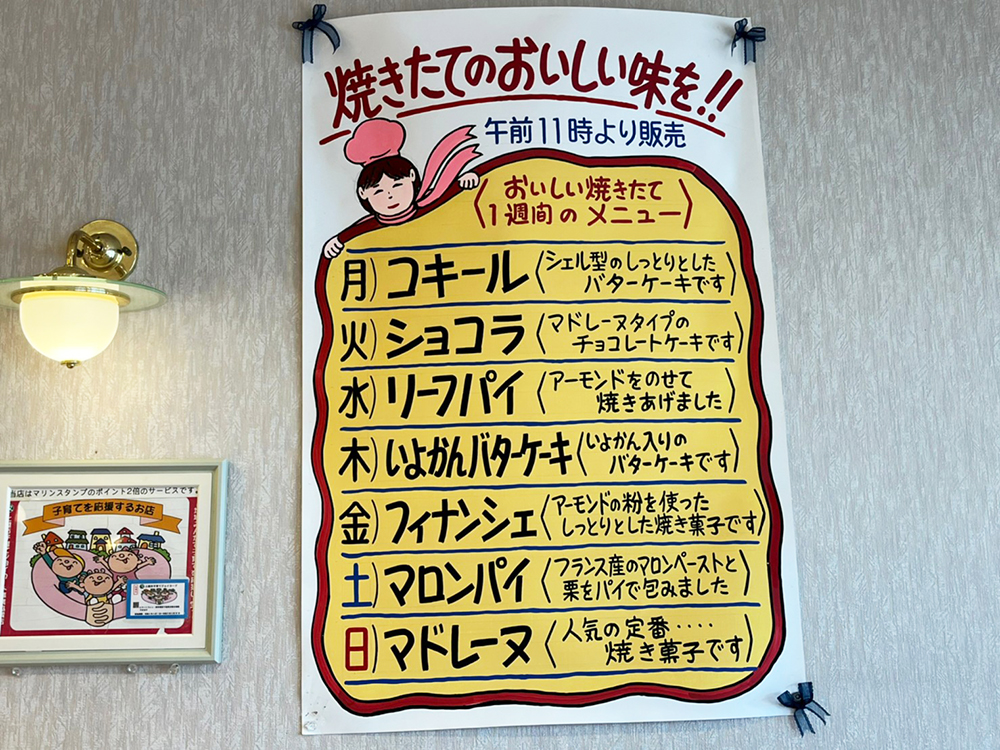 焼きたてのおいしい味を!!
午前11時より販売
〈おいしい焼きたて
1週間のメニュー〉
月)コキール〈シェル型のしっとりとした
バターケーキです〉
火)ショコラ〈マドレーヌタイプの
チョコレートケーキです〉
水)リーフパイ〈アーモンドをのせて
焼きあげました〉
木)いよかんバターケーキ〈いよかん入りの
バターケーキです〉
金)フィナンシェ〈アーモンドの粉を使った
しっとりとした焼き菓子です〉
土)マロンパイ〈フランス産のマロンペーストと
栗をパイで包みました〉
日)マドレーヌ〈人気の定番‥‥
焼き菓子です〉
当店はマリンスタンプのポイント2倍のサービスです。
子育てを応援するお店